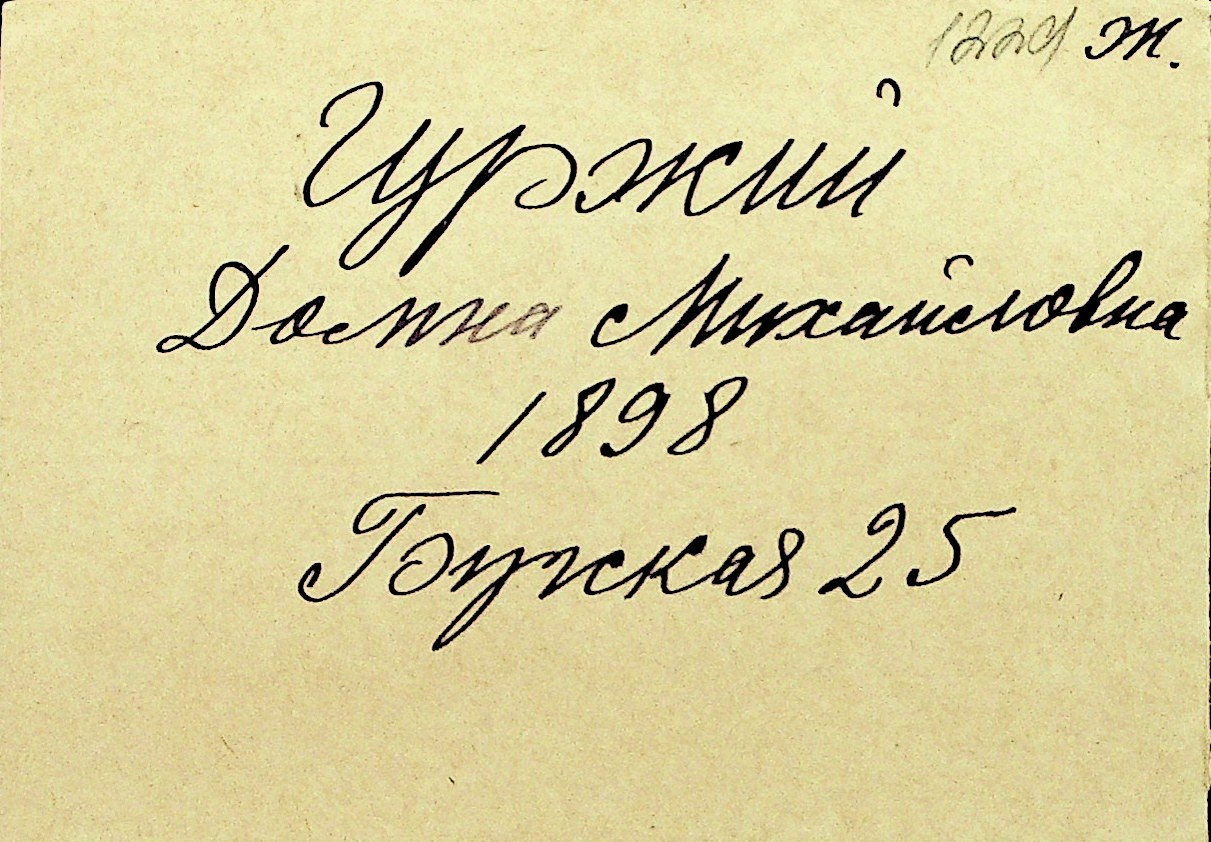 1229 ж.
Гуржий
Домна Михайловна
1898
Бужская 25